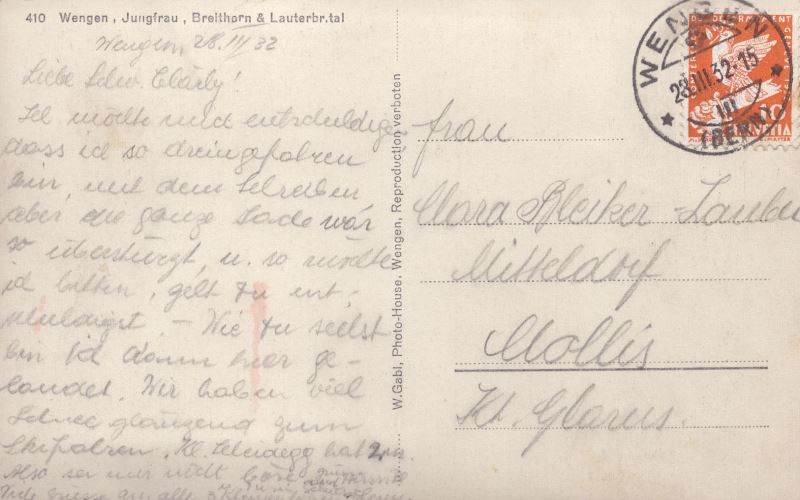 410 Wengen, Jungfrau, Breithorn & Lauterbr.tal
Wengen, 28./III/32
Liebe Schw. Clärly!
Ich möchte mich entschuldigen
dass ich so dreingefahren
bin, mit dem Schreiben
aber die ganze Sache war
so überstürzt, u. so möchte
ich bitten, gelt du ent-
schuldigst. – Wie du siehst
bin ich dann hier ge-
landet. Wir haben viel
Schnee glänzend zum
Skifahren. Kl. Scheidegg hat 2 m.
Also sei mir nicht böse
Viele Grüsse an alle
W. Gabi, Photo-House, Wengen, Reproduction verboten
WENGEN
28.III.32-15
III
(BERN)
10
HELVETIA
Frau
Clara Bleiker-
Mitteldorf
Mollis
Kt. Glarus.